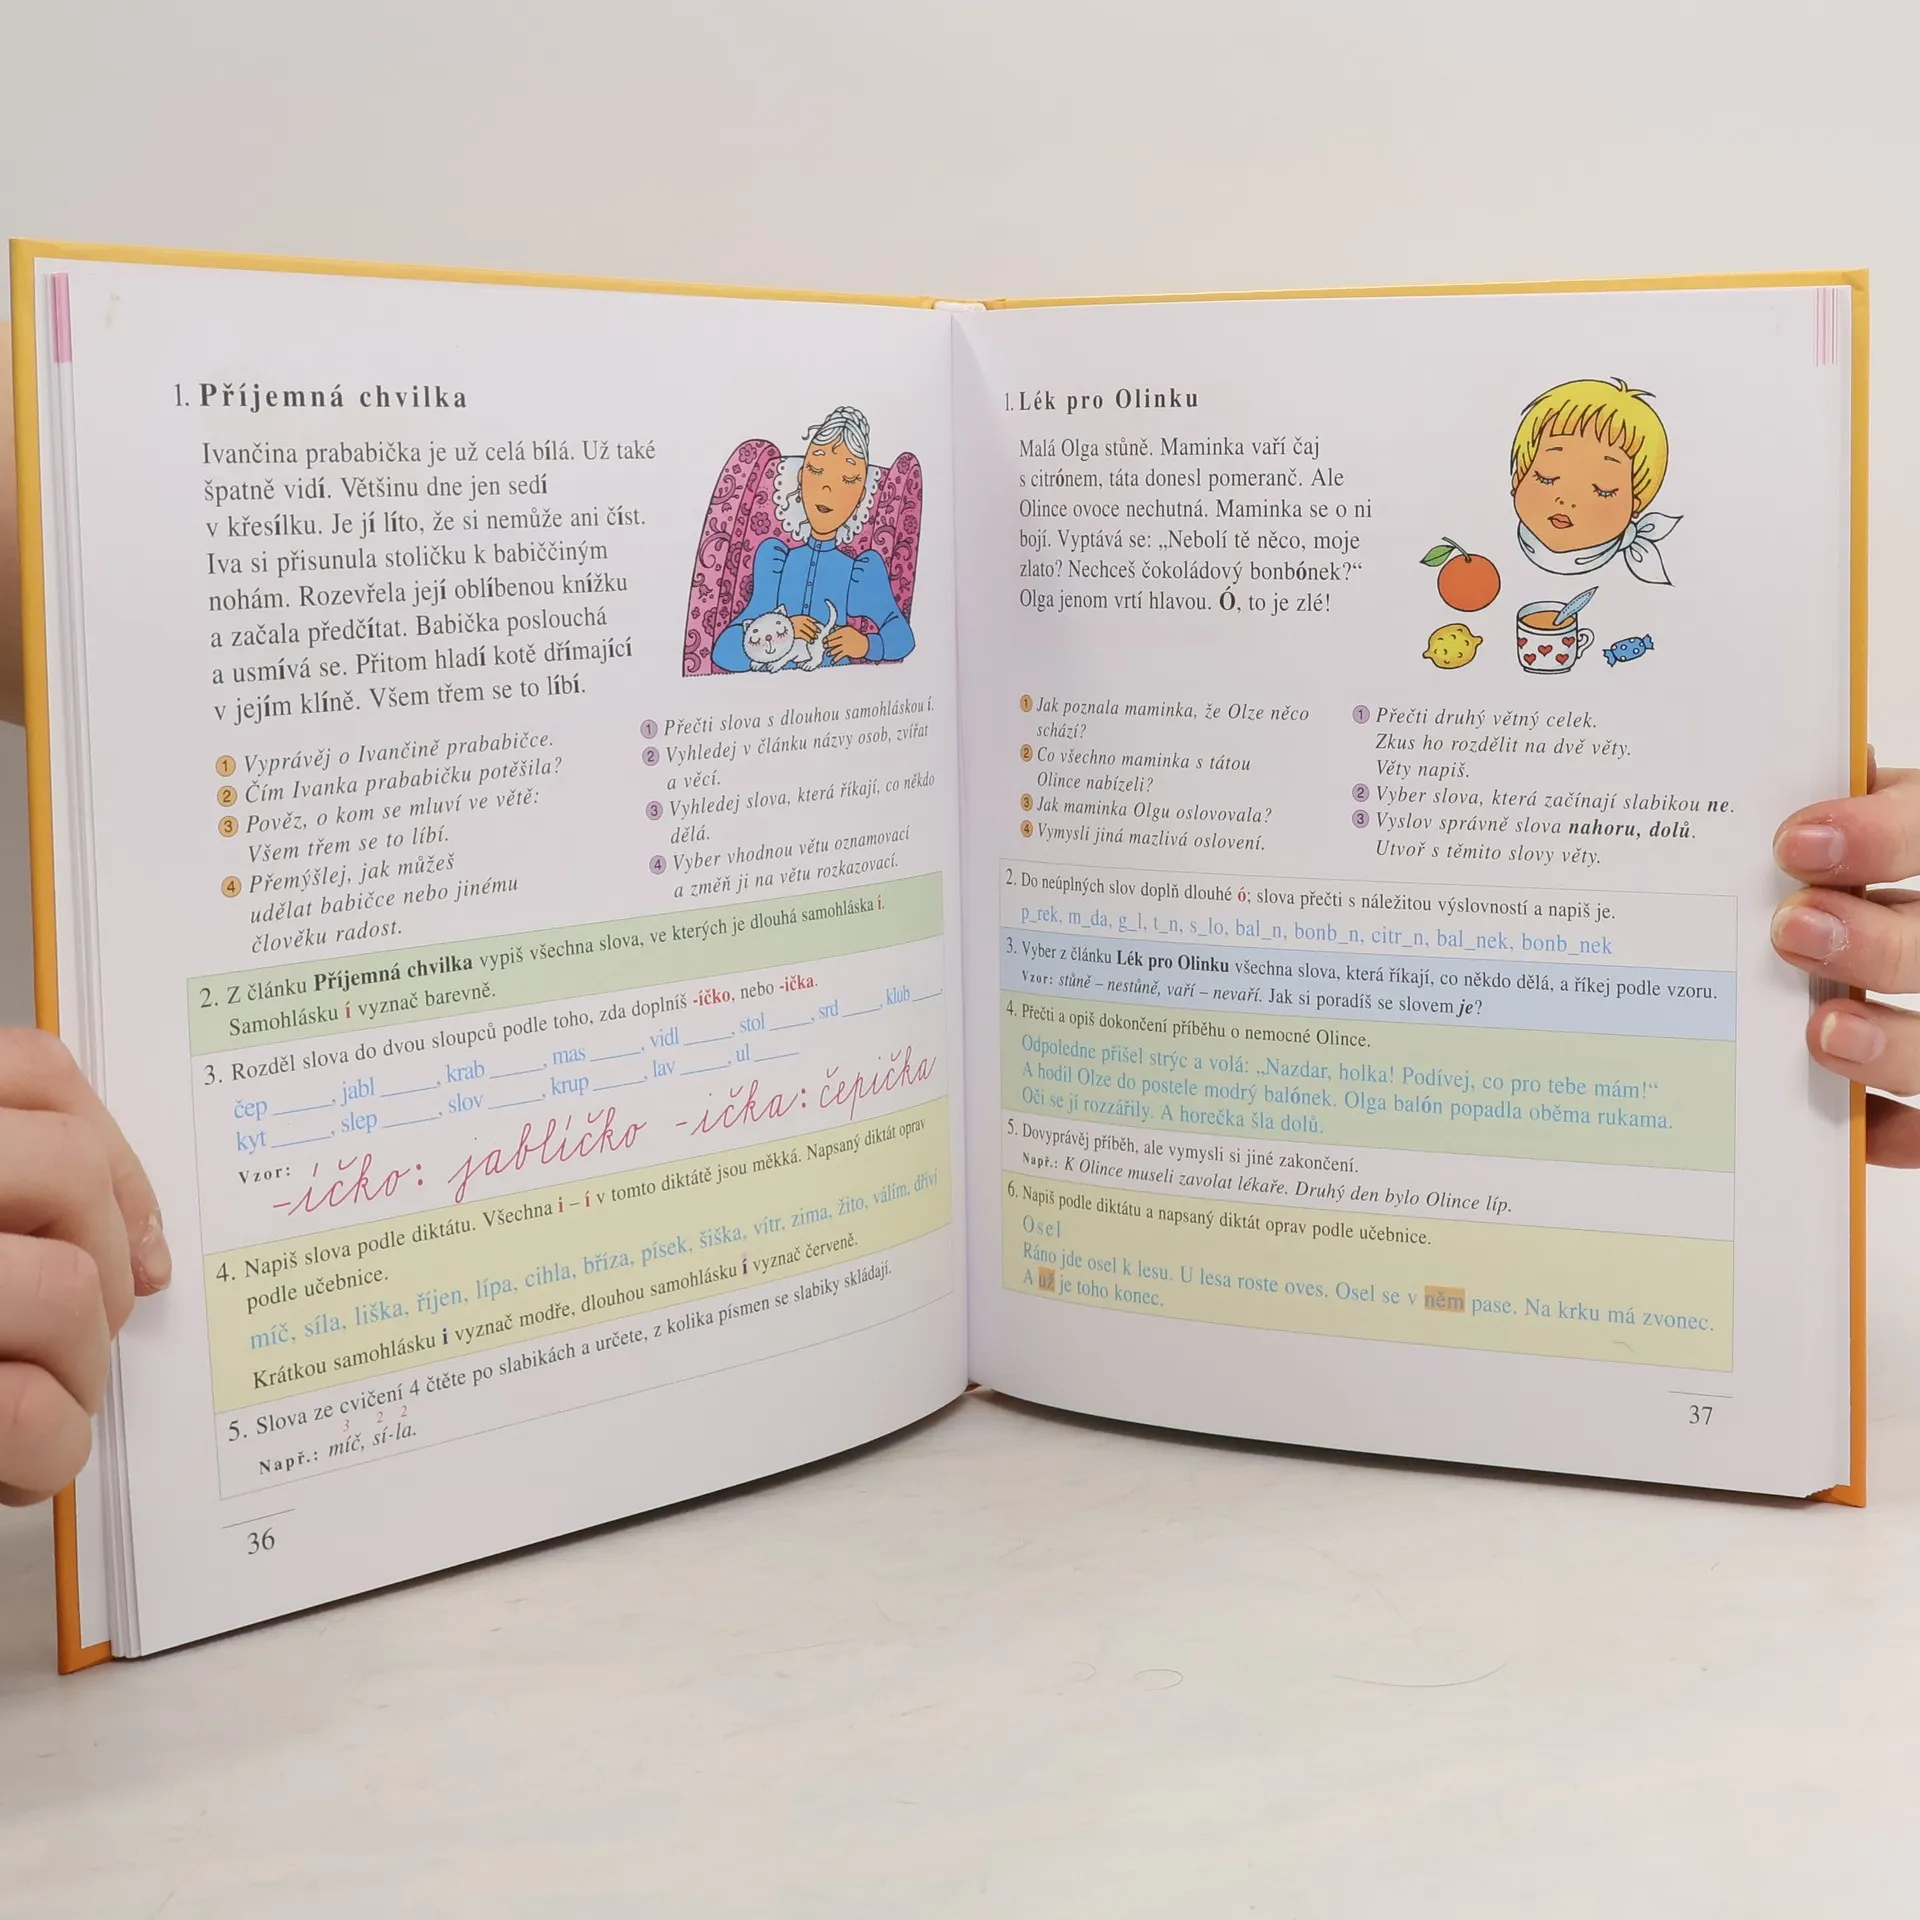 1. Příjemná chvilka
Ivančina prababička je už celá bílá. Už také
špatně vidí. Většinu dne jen sedí
v křesílku. Je jí líto, že si nemůže ani číst.
Iva si přisunula stoličku k babiččiným
nohám. Rozevřela její oblíbenou knížku
a začala předčítat. Babička poslouchá
a usmívá se. Přitom hladí kotě dřímající
v jejím klíně. Všem třem se to líbí.
1 Vyprávěj o Ivančině prababičce.
2 Čím Ivanka prababičku potěšila?
3 Pověz, o kom se mluví ve větě:
Všem třem se to líbí.
4 Přemýšlej, jak můžeš
udělat babičce nebo jinému
člověku radost.
1 Přečti slova s dlouhou samohláskou í.
2 Vyhledej v článku názvy osob, zvířat
a věcí.
3 Vyhledej slova, která říkají, co někdo
dělá.
4 Vyber vhodnou větu oznamovací
a změň ji na větu rozkazovací.
2. Z článku Příjemná chvilka vypiš všechna slova, ve kterých je dlouhá samohláska í.
Samohlásku í vyznač barevně.
3. Rozděl slova do dvou sloupců podle toho, zda doplníš -íčko, nebo -ička.
čep_____, jabl_____, krab_____, mas_____, vidl_____, stol_____, srd_____, klub_____,
kyt_____, slep_____, slov_____, krup_____, lav_____, ul_____
Vzor: -íčko: jablíčko -ička: čepička
4. Napiš slova podle diktátu. Všechna i – í v tomto diktátě jsou měkká. Napsaný diktát oprav
podle učebnice.
míč, síla, liška, říjen, lípa, cihla, bříza, písek, šiška, vítr, zima, žito, válím, dříví
Krátkou samohlásku i vyznač modře, dlouhou samohlásku í vyznač červeně.
5. Slova ze cvičení 4 čtěte po slabikách a určete, z kolika písmen se slabiky skládají.
3 2 2
Např.: míč, sí-la.
36
1. Lék pro Olinku
Malá Olga stůně. Maminka vaří čaj
s citrónem, táta donesl pomeranč. Ale
Olince ovoce nechutná. Maminka se o ni
bojí. Vyptává se: „Nebolí tě něco, moje
zlato? Nechceš čokoládový bonbónek?“
Olga jenom vrtí hlavou. Ó, to je zlé!
1 Jak poznala maminka, že Olze něco
schází?
2 Co všechno maminka s tátou
Olince nabízeli?
3 Jak maminka Olgu oslovovala?
4 Vymysli jiná mazlivá oslovení.
1 Přečti druhý větný celek.
Zkus ho rozdělit na dvě věty.
Věty napiš.
2 Vyber slova, která začínají slabikou ne.
3 Vyslov správně slova nahoru, dolů.
Utvoř s těmito slovy věty.
2. Do neúplných slov doplň dlouhé ó; slova přečti s náležitou výslovností a napiš je.
p_rek, m_da, g_l, t_n, s_lo, bal_n, bonb_n, citr_n, bal_nek, bonb_nek
3. Vyber z článku Lék pro Olinku všechna slova, která říkají, co někdo dělá, a říkej podle vzoru.
Vzor: stůně – nestůně, vaří – nevaří. Jak si poradíš se slovem je?
4. Přečti a opiš dokončení příběhu o nemocné Olince.
Odpoledne přišel strýc a volá: „Nazdar, holka! Podívej, co pro tebe mám!“
A hodil Olze do postele modrý balónek. Olga balón popadla oběma rukama.
Oči se jí rozzářily. A horečka šla dolů.
5. Dovyprávěj příběh, ale vymysli si jiné zakončení.
Např.: K Olince museli zavolat lékaře. Druhý den bylo Olince líp.
6. Napiš podle diktátu a napsaný diktát oprav podle učebnice.
Osel
Ráno jde osel k lesu. U lesa roste oves. Osel se v něm pase. Na krku má zvonec.
A už je toho konec.
37